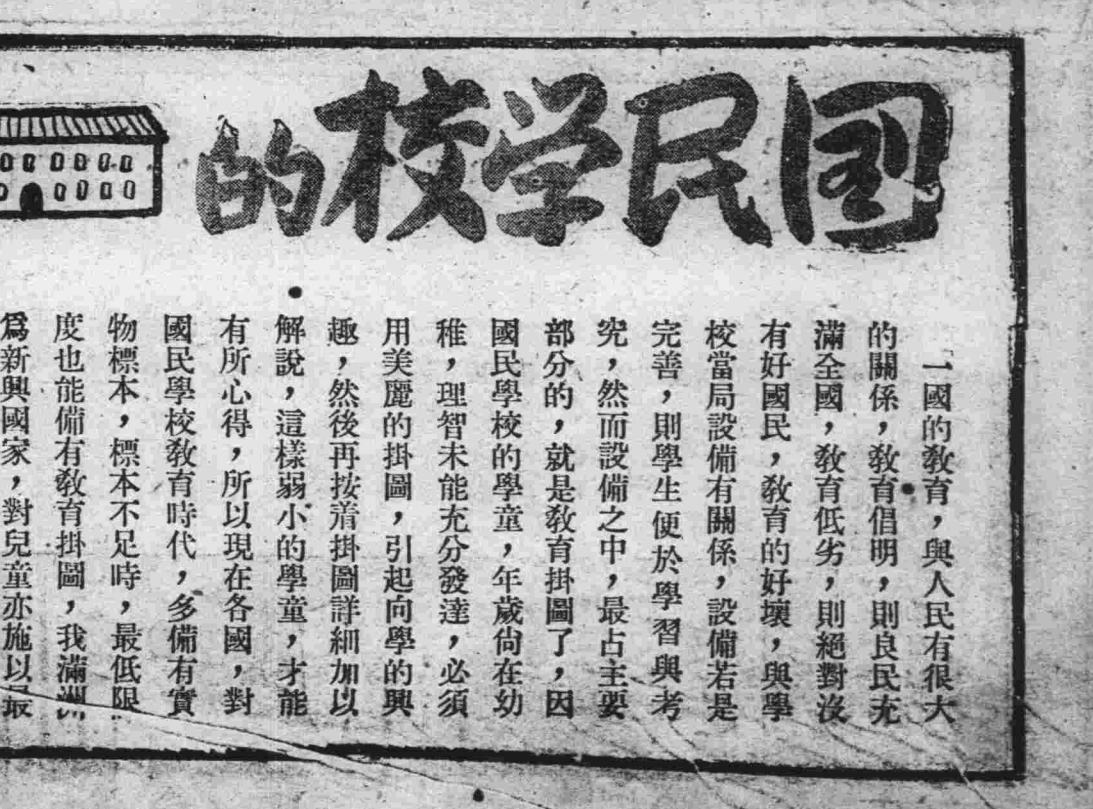 国民学校的
一國的敎育，與人民有很大
的關係，敎育倡明，則良民充
滿全國，敎育低劣，則絕對沒
有好國民，敎育的好壞，與學
校當局設備有關係，設備若是
完善，則學生便於學習與考
究，然而設備之中，最占主要
部分的，就是敎育掛圖了，因
國民學校的學童，年歲尙在幼
稚，理智未能充分發達，必須
用美麗的掛圖，引起向學的興
趣，然後再按着掛圖詳細加以
解說，這樣弱小的學童，才能
有所心得，所以現在各國，對
國民學校敎育時代，多備有實
物標本，標本不足時，最低限
度也能備有敎育掛圖，我滿洲
爲新興國家，對兒童亦施以最